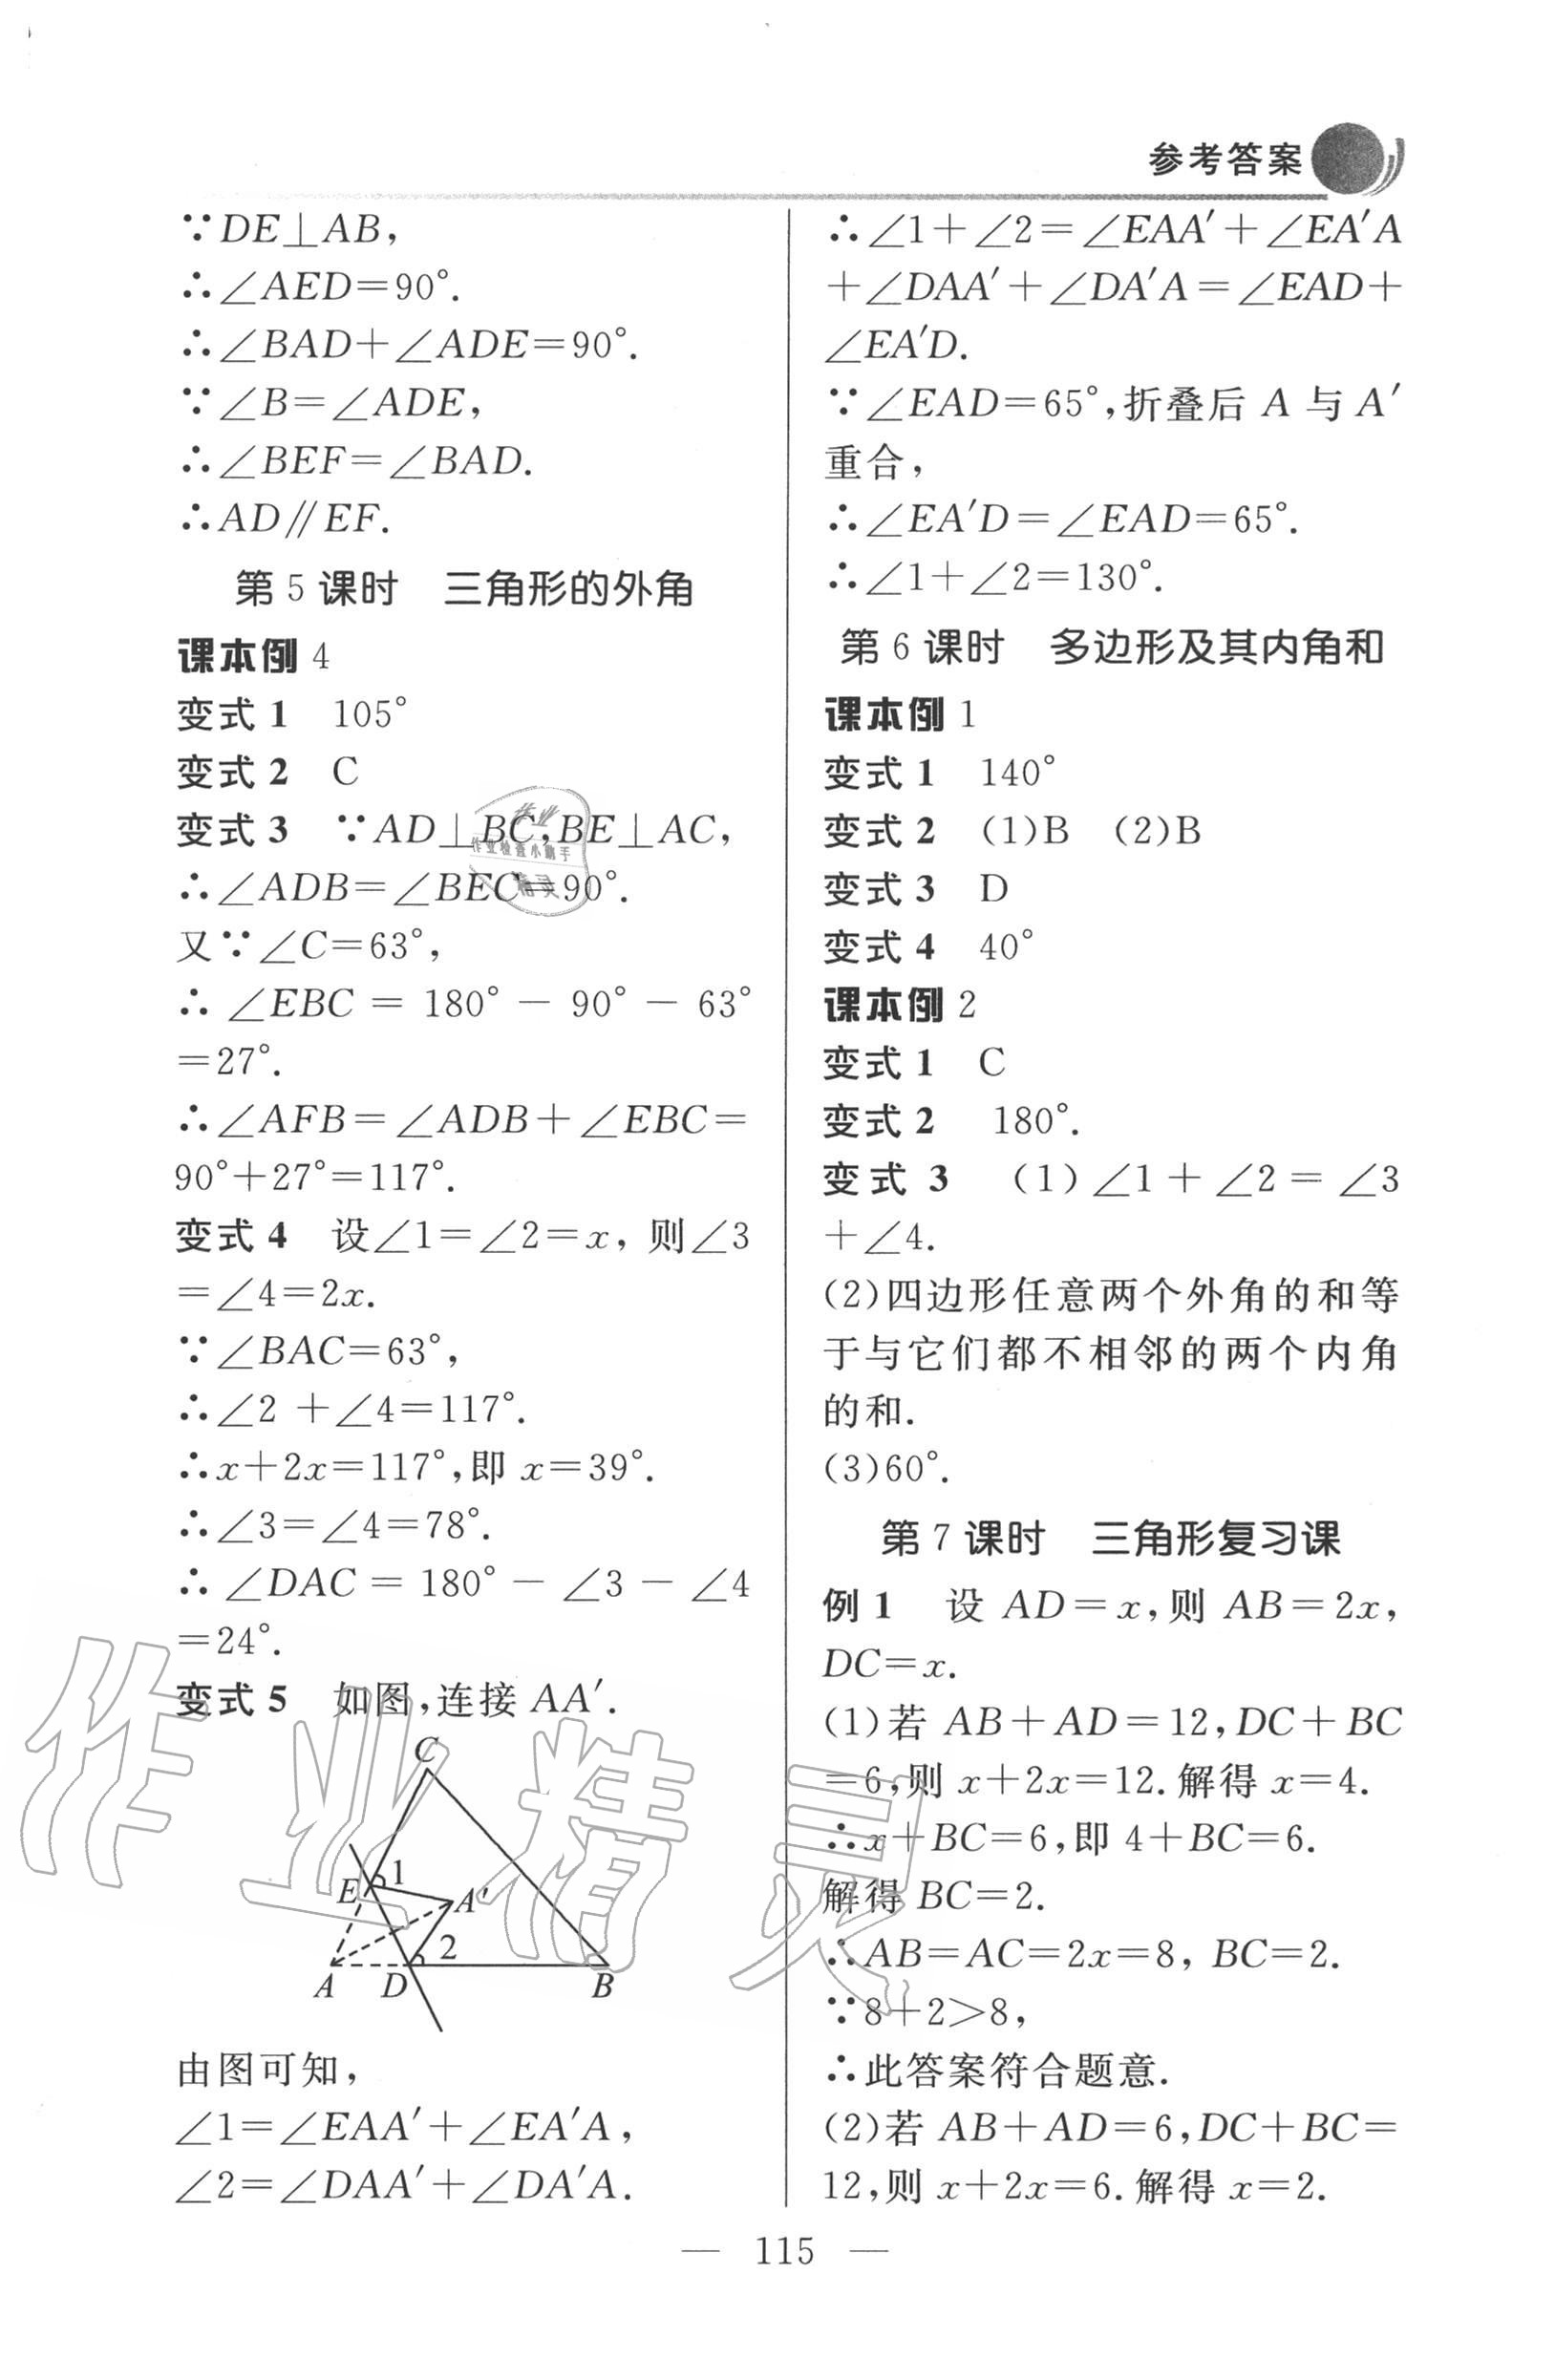 参考答案
∵DE⊥AB,
∴∠AED=90°.
∴∠BAD+∠ADE=90°.
∵∠B=∠ADE,
∴∠BEF=∠BAD.
∴AD∥EF.
第 5 课时 三角形的外角
课本例 4
变式 1 105°
变式 2 C
变式 3 ∵AD⊥BC,BE⊥AC,
∴∠ADB=∠BEC=90°.
又∵∠C=63°,
∴ ∠EBC = 180° - 90° - 63°
=27°.
∴∠AFB=∠ADB+∠EBC=
90°+27°=117°.
变式 4 设∠1=∠2=x, 则∠3
=∠4=2x.
∵∠BAC=63°,
∴∠2 +∠4=117°.
∴x+2x=117°,即 x=39°.
∴∠3=∠4=78°.
∴ ∠DAC = 180° - ∠3 - ∠4
=24°.
变式 5 如图,连接 AA′.
C
E 1 A′
2
A D B
由图可知,
∠1=∠EAA′+∠EA′A,
∠2=∠DAA′+∠DA′A.
∴∠1+∠2=∠EAA′+∠EA′A
+∠DAA′+∠DA′A=∠EAD+
∠EA′D.
∵∠EAD=65°,折叠后 A 与 A′
重合,
∴∠EA′D=∠EAD=65°.
∴∠1+∠2=130°.
第 6 课时 多边形及其内角和
课本例 1
变式 1 140°
变式 2 (1)B (2)B
变式 3 D
变式 4 40°
课本例 2
变式 1 C
变式 2 180°.
变式 3 (1)∠1+∠2=∠3
+∠4.
(2)四边形任意两个外角的和等
于与它们都不相邻的两个内角
的和.
(3)60°.
第 7 课时 三角形复习课
例 1 设 AD=x,则 AB=2x,
DC=x.
(1)若 AB+AD=12,DC+BC
=6,则 x+2x=12.解得 x=4.
∴x+BC=6,即 4+BC=6.
解得 BC=2.
∴AB=AC=2x=8, BC=2.
∵8+2>8,
∴此答案符合题意.
(2)若 AB+AD=6,DC+BC=
12,则 x+2x=6.解得 x=2.
— 115 —
作业精灵
作业
作业检查小助手
精灵